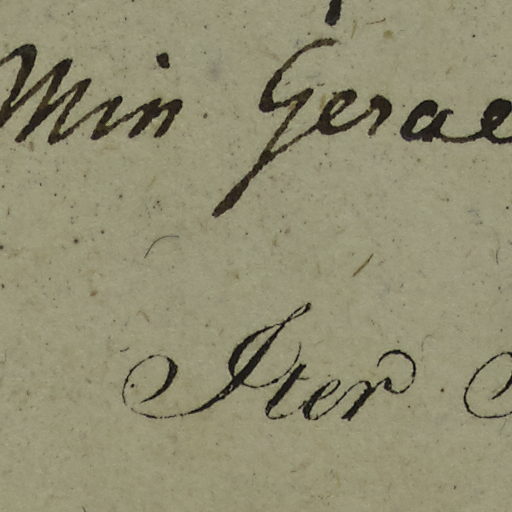 Min Gerae
Iter